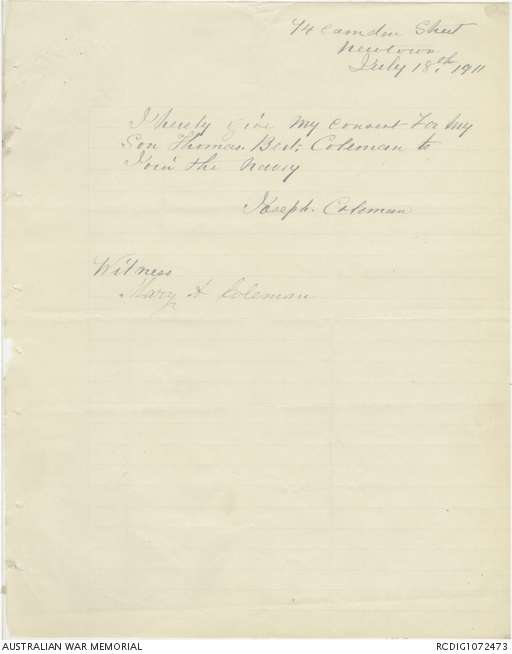 74 Camden Street
Newtown
July 18th 1911
I herely give my consent for my
Son Thomas Bert. Coleman to
Join the Navy
Joseph. Coleman
Witness
Mary A Coleman
AUSTRALIAN WAR MEMORIAL
RCDIG1072473